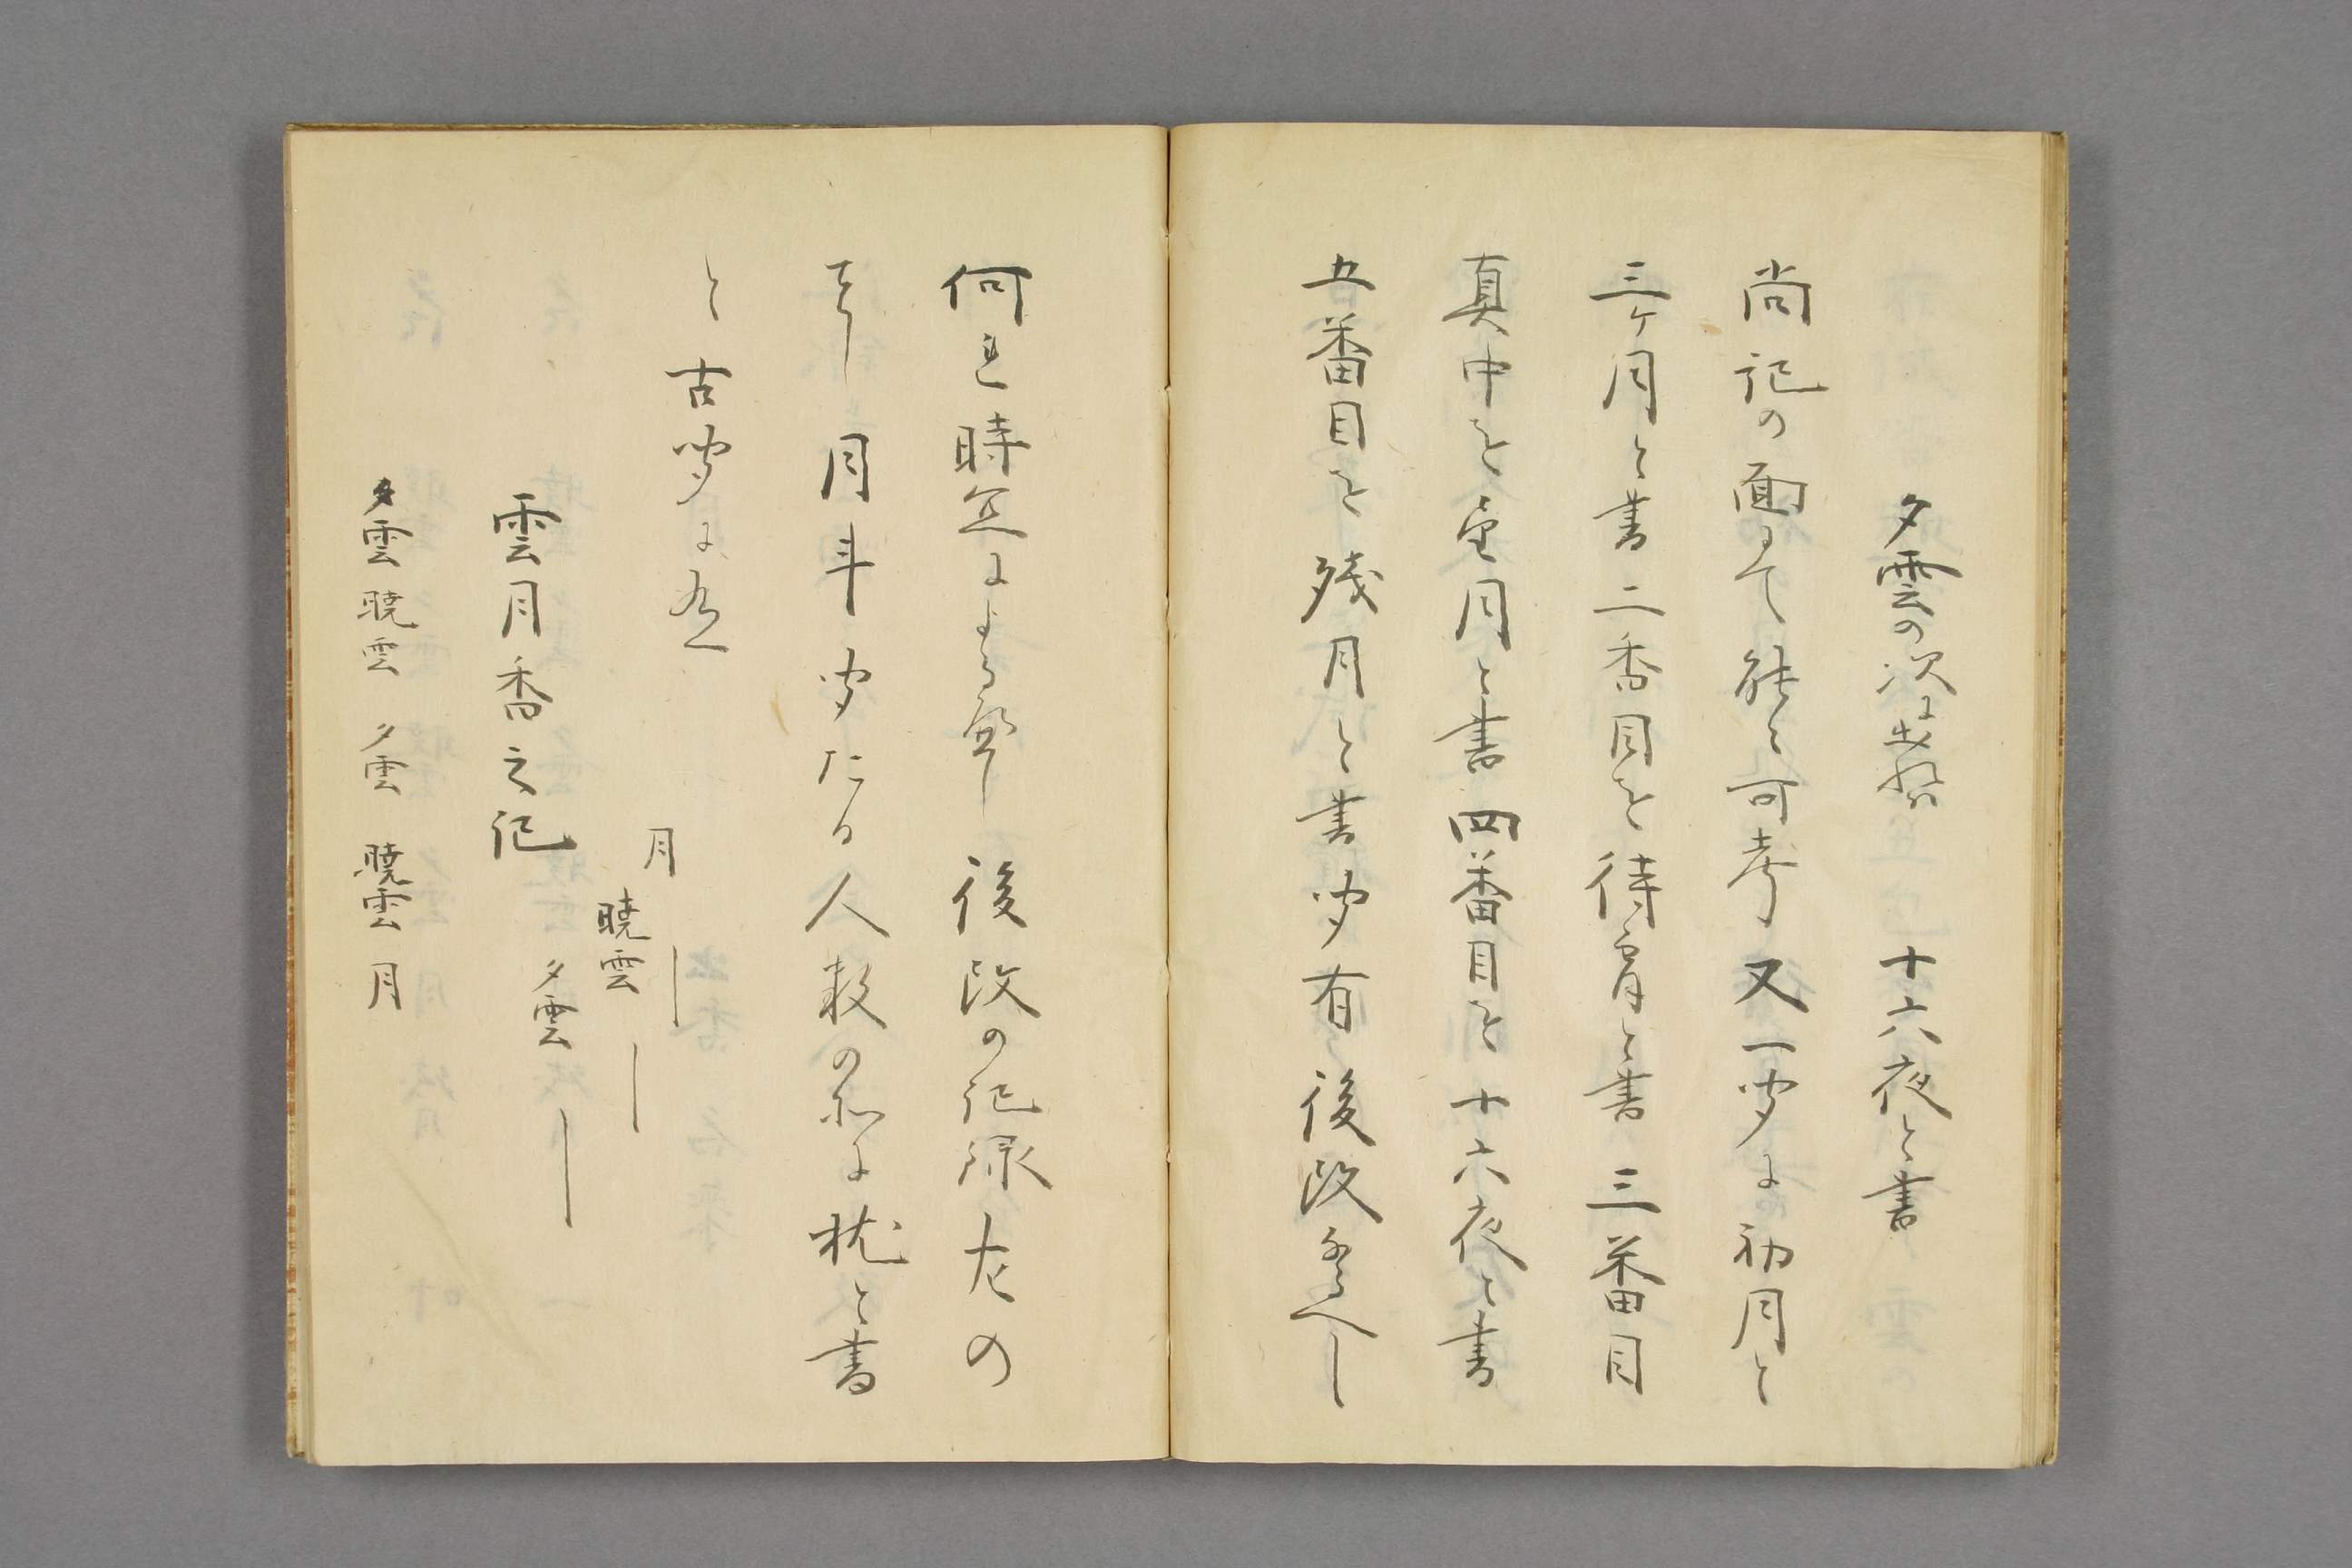 夕雲の次に出れハ　十六夜と書
尚記の面にて能々可考又一聞に初月と
三ケ月と書二香目を待宵と書三番目
真中を望月と書四番目を十六夜と書
五番目を残月と書聞有後改むへし
何れ時宜による事し後改の記録左の
ことし月斗聞たる人数の所に枕と書
と古聞に有
月　—
暁雲　—
夕雲　—
雲月香之記
夕雲　暁雲　夕雲　暁雲　月